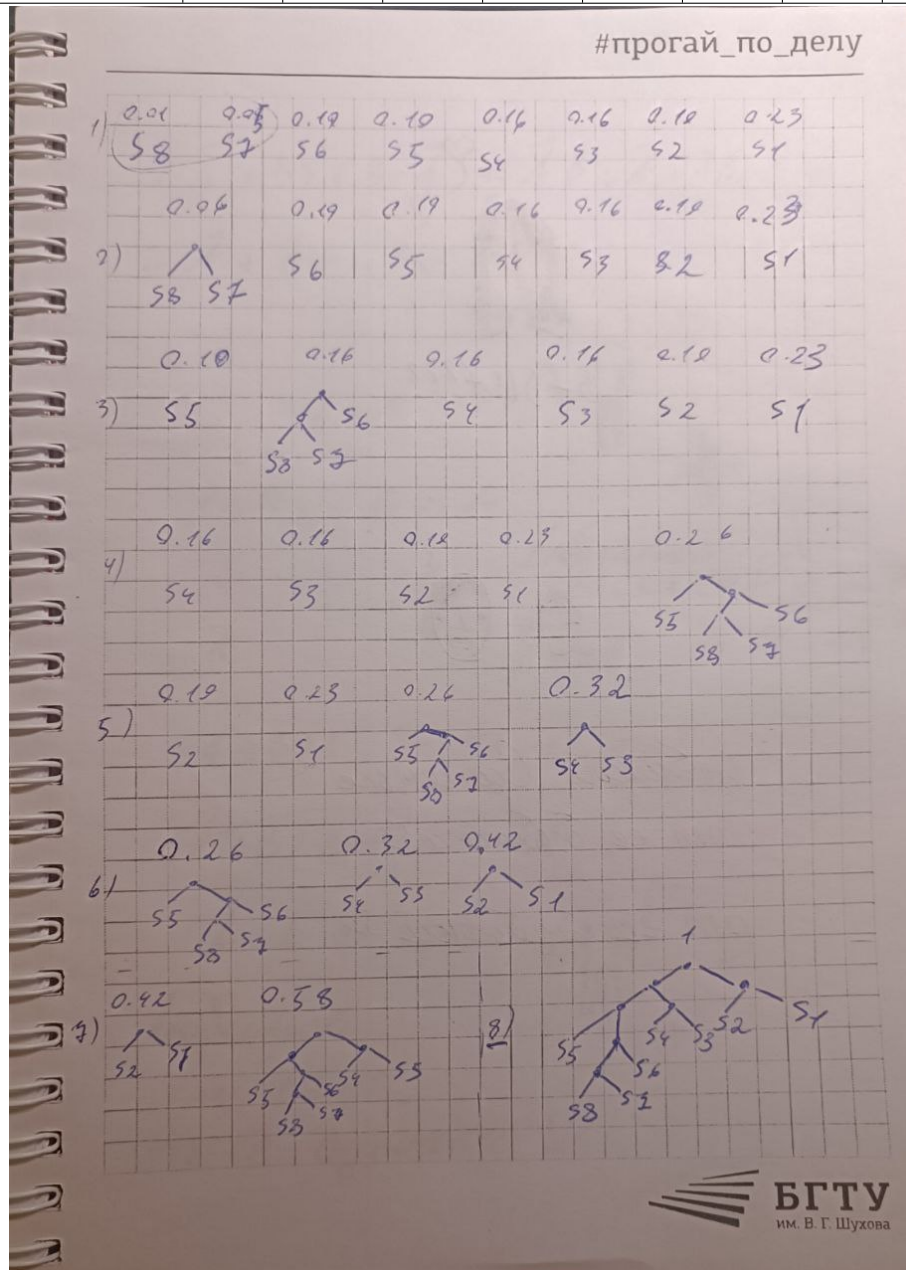 #прогай_по_делу
1) 0.01 0.05 0.10 0.10 0.16 0.16 0.19 0.23
S8 S7 S6 S5 S4 S3 S2 S1
0.06 0.10 0.10 0.16 0.16 0.19 0.23
2) S6 S5 S4 S3 S2 S1
S8 S7
0.10 0.16 0.16 0.16 0.19 0.23
3) S5 S6 S4 S3 S2 S1
S8 S7
0.16 0.16 0.19 0.23 0.26
4) S4 S3 S2 S1 S5 S6
S8 S7
0.19 0.23 0.26 0.32
5) S2 S1 S5 S6 S4 S3
S8 S7
0.26 0.32 0.42
6) S5 S6 S4 S3 S2 S1
S8 S7
1
0.42 0.58
7) S2 S1 S5 S6 S4 S3
S8 S7
8) S5 S4 S3 S2 S1
S6
S8 S7
БГТУ
им. В. Г. Шухова